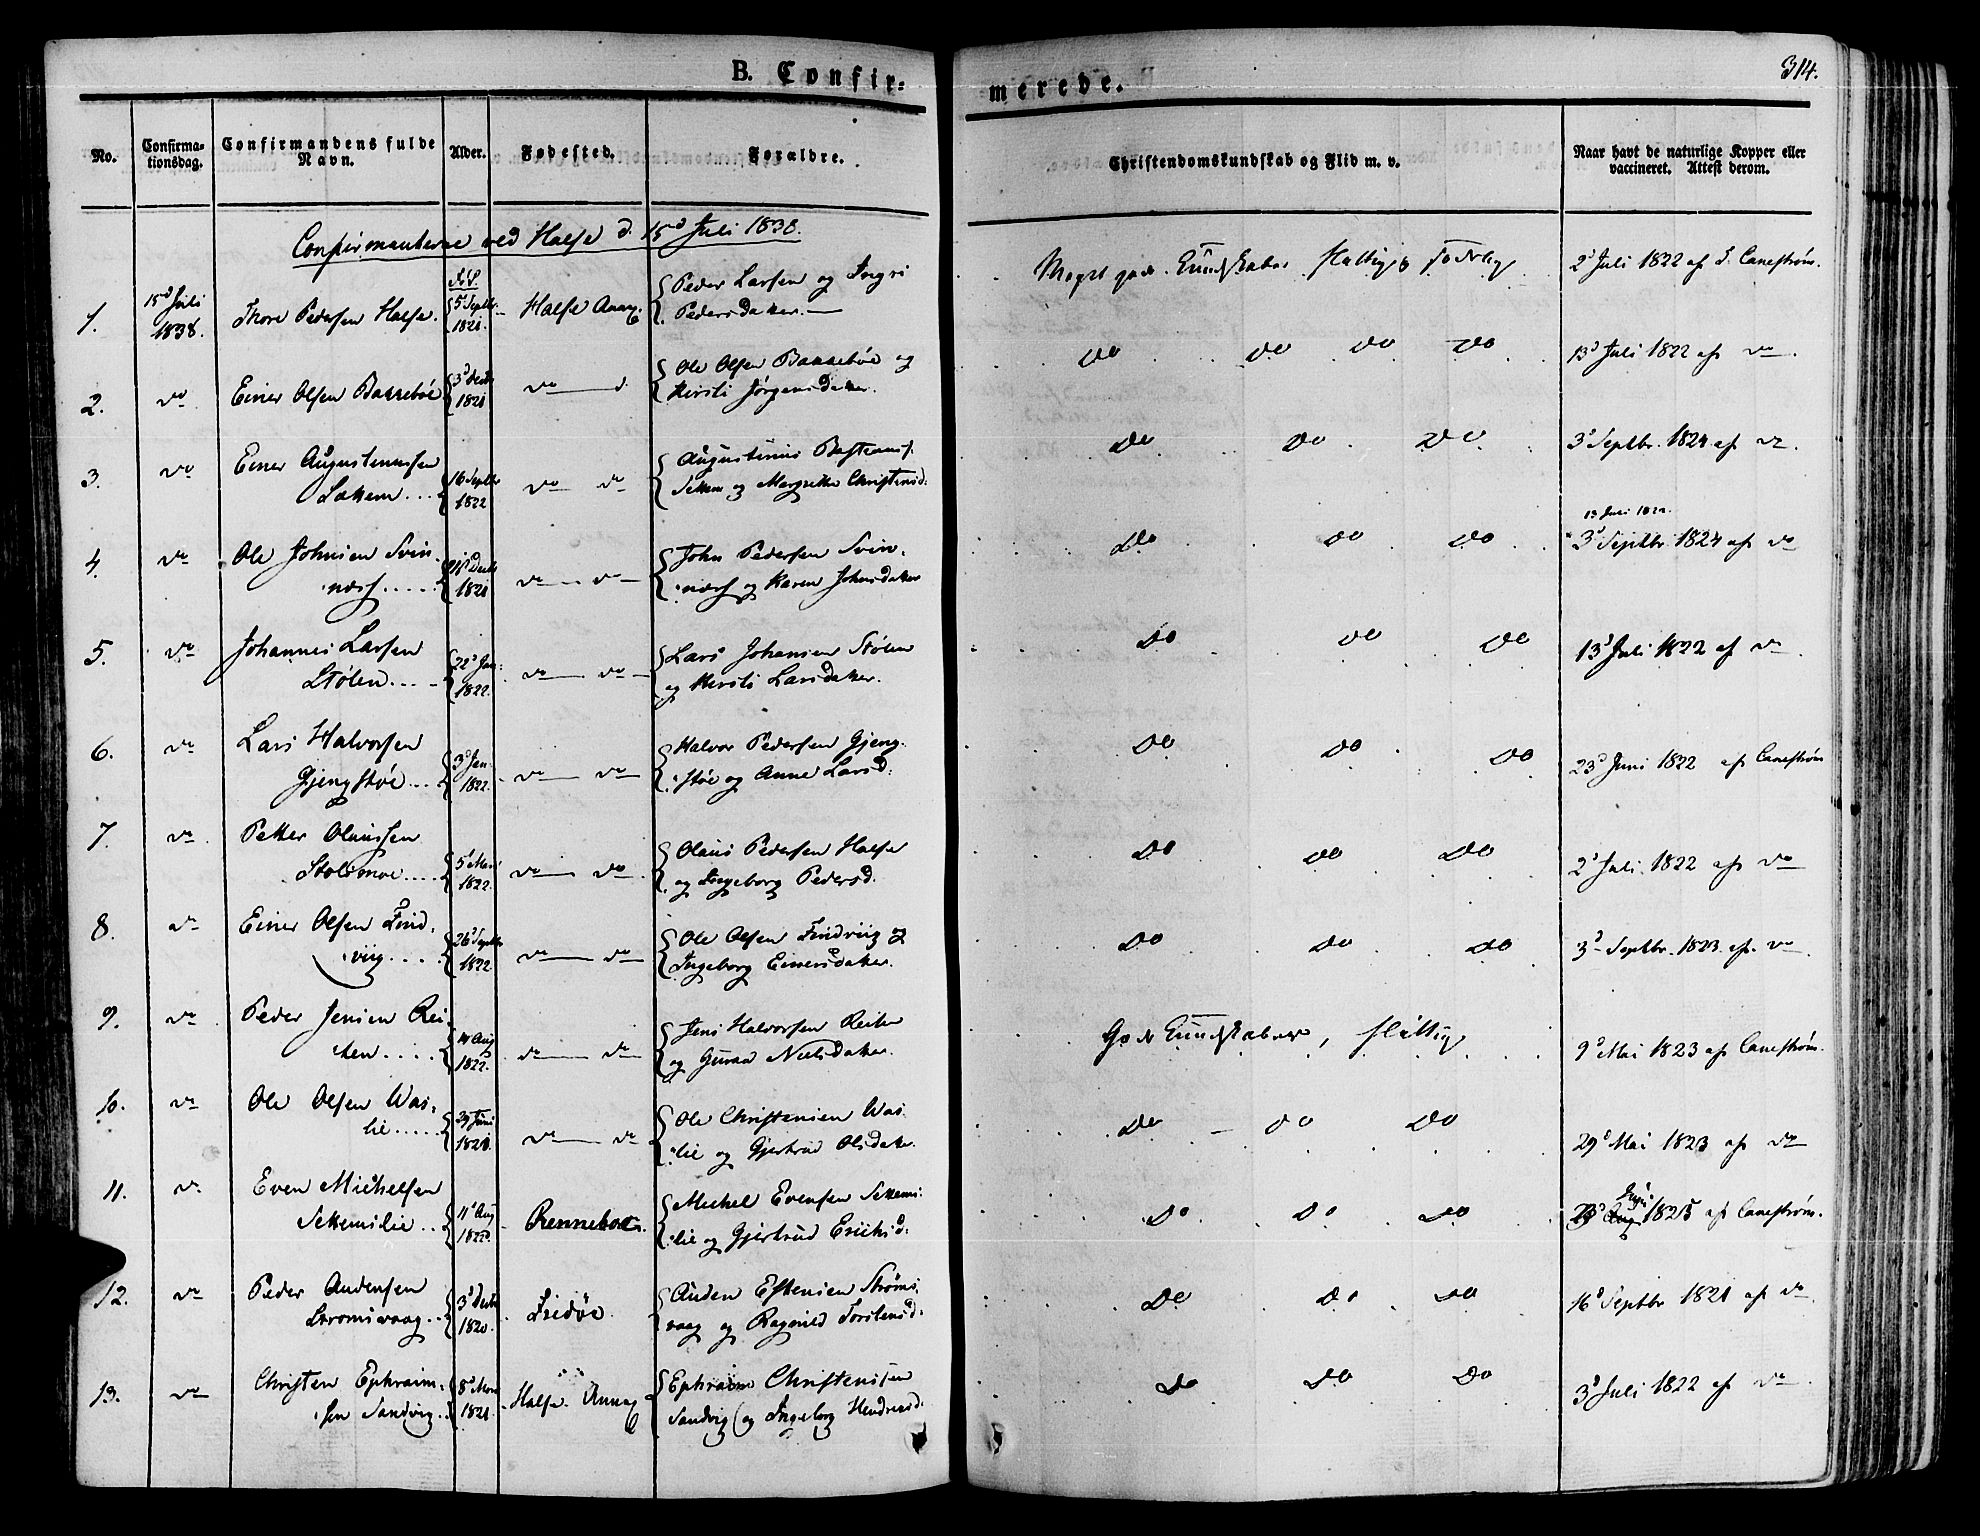 B. Confir=
merede.
314.
No.
Confirma-
tionsdag.
Confirmandens fulde
Navn.
Alder.
Fødested.
Forældre.
Christendomskundskab og Flid m. v.
Naar havt de naturlige Kopper eller
vaccineret. Attest derom.
Confirmanterne ved Halse d. 15d Juli 1838.
1. 15d Juli 1838. Thore Pedersen Halse. 5 Septbr 1821. Halse Annex {Peder Larsen og Ingri
Pedersdatter. Meget gode Kundskaber flittig 2d Juli 1822 af Canestrøm.
2. do Einer Olsen Bakkebøe 3d 1821 do {Ole Olsen Bakkebøe og
Kirsti Jørgensdatter. do do do do 13d Juli 1822 af do.
3. do Einer Augustinussen
16 Septbr 1822 do do {Augustinus
og Margrethe Christensd: do do do 3d Septbr. 1824 af do
4. do Ole Johnsen Svin-
næss 1821 do do {John Pedersen Svin-
næss og Karen Johnsdatter do do do 13 Juli 1822.
3d Septbr. 1824 af do
5. do Johannes Larsen
Stølen 22d Jan: 1822. do do {Lars Johansen Stølen
og Kirsti Larsdatter. do do do 13d Juli 1822 af do
6. do Lars Halvorsen
Gjengstøe 3d Jan. 1822. do do {Halvor Pedersen Gjeng-
støe og Anne Larsd: do do do 23d Juni 1822 af Canestrøm
7. do Petter Olaussen
Stolsmoe 5d 1822. do do {Olaus Pedersen Halse
og Ingeborg Pedersd. do do do 2d Juli 1822 af do
8. do Einer Olsen Find-
viig 26d Septbr 1822 do do {Ole Olsen Findviig og
Ingeborg Einersdatter. do do do 3d Septbr. 1823 af do
9. do Peder Jensen Rei-
ten 14 Aug 1822. do do {Jens Halvorsen Reiten
og Nielsdatter. Gode Kundskaber, flittig 9d Mai 1823 af Canestrøm.
10. do Ole Olsen Was-
lie 1821. do do {Ole Christensen Was-
lie og Gjertrud Olsdatter. do do do 29d Mai 1823 af do
11. do Even Michelsen
Settemslie 11d Aug 1822. Renneboe {Michel Evensen Settems-
lie og Gjertrud Ericksd: do do do 1825 af Canestrøm.
12. do Peder Audensen
Strømsvaag 3d 1820. Fredøe {Auden Estensen Strøms-
vaag og Ragnild Torstensd: do do do 16d Septbr 1821 af do
13. do Christen Ephraim-
sen Sandvig 8d 1821. Halse Annex {Ephraim Christensen
Sandvig og Ingeborg Hendriksd: do do do 3d Juli 1822 af do